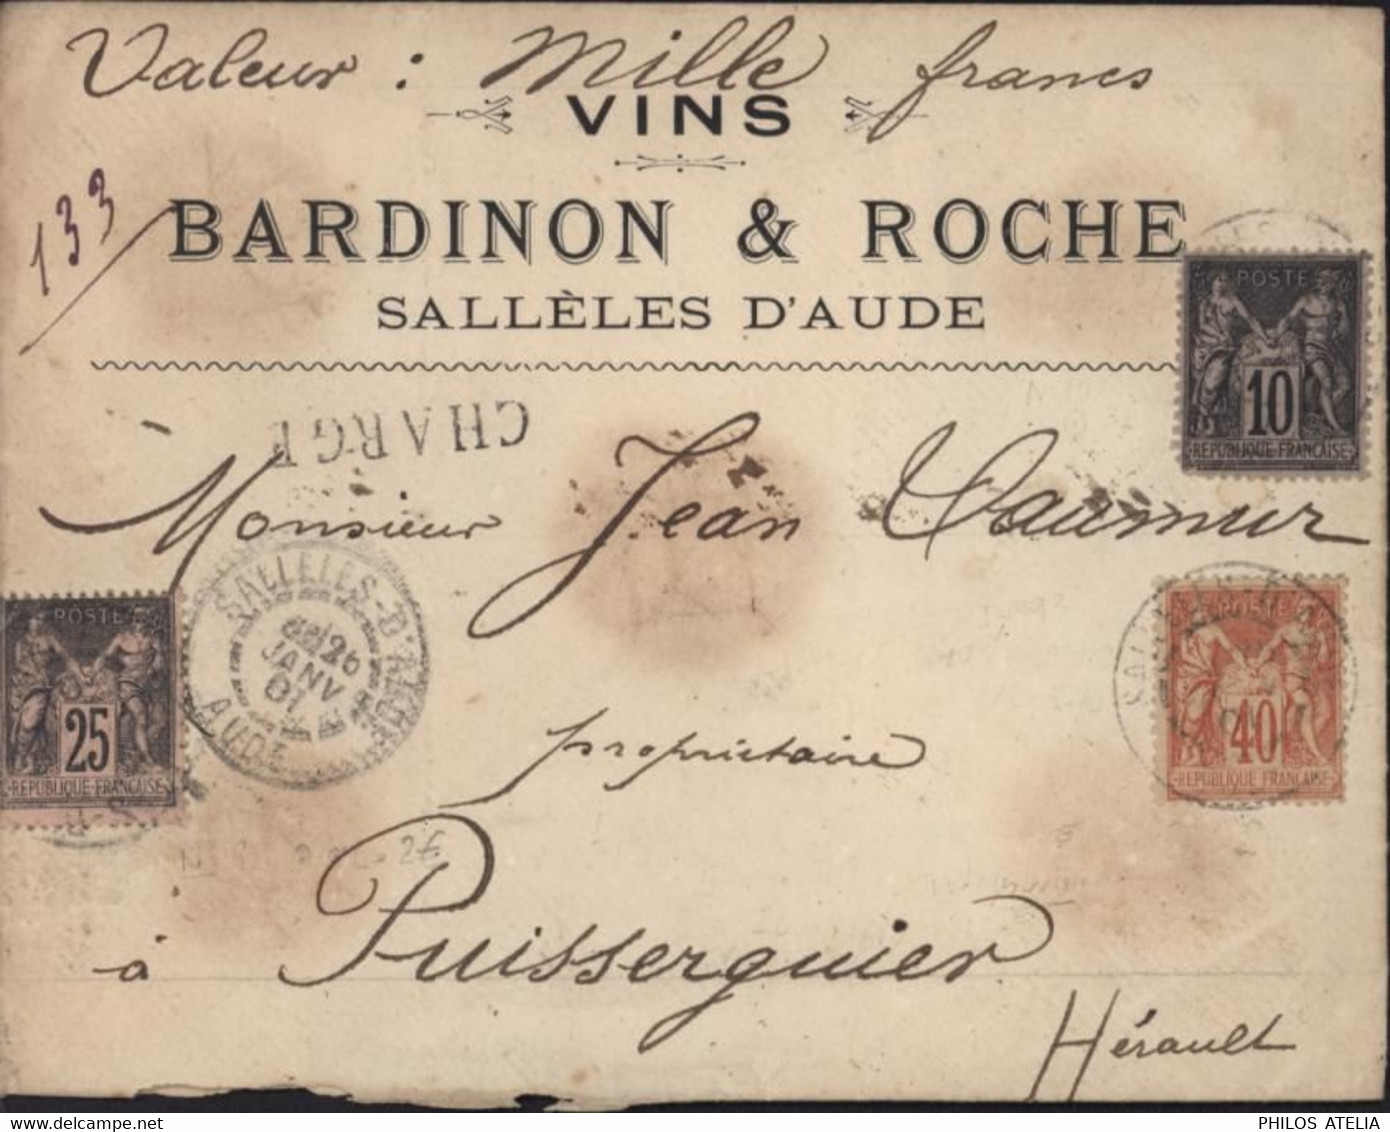 Valeur : Mille francs
VINS
133
BARDINON & ROCHE
SALLÈLES D'AUDE
POSTE
10
REPUBLIQUE FRANÇAISE
CHARGE
Monsieur Jean Vaumur
SALLELES-D'AUDE
26
JANV
01
AUDE
POSTE
25
REPUBLIQUE FRANÇAISE
POSTE
40
REPUBLIQUE FRANÇAISE
propriétaire
2€
à Puisserguier
Hérault
PHILOS ATELIA